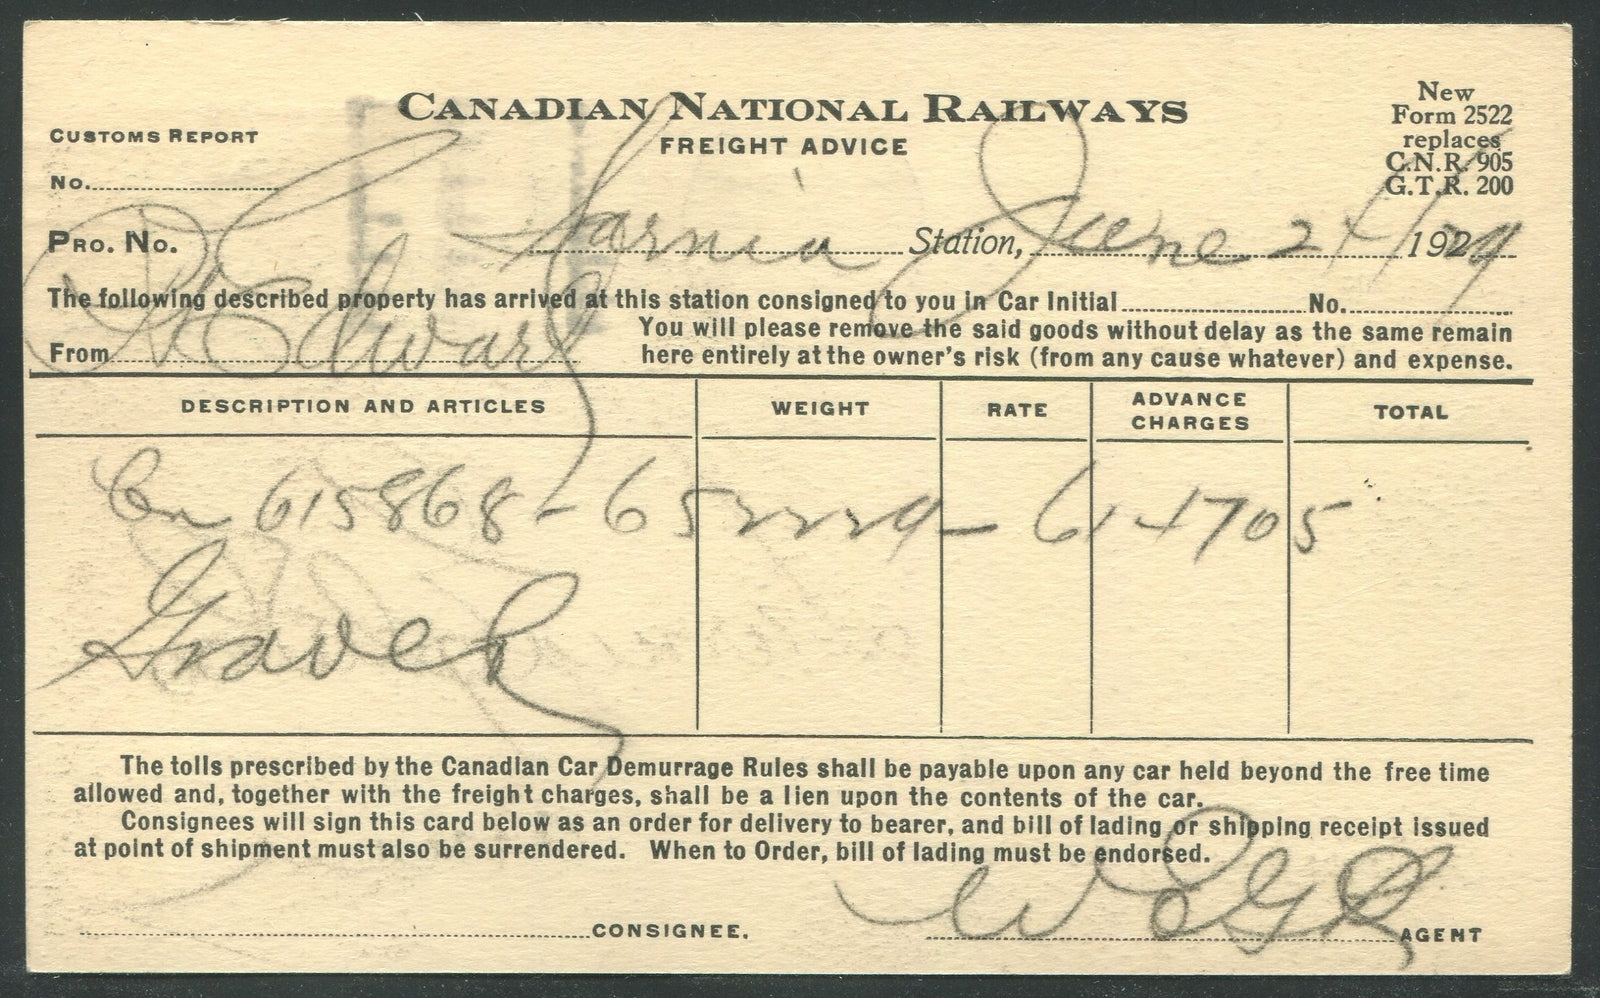 CANADIAN NATIONAL RAILWAYS
FREIGHT ADVICE
New
Form 2522
replaces
C.N.R. 905
G.T.R. 200
CUSTOMS REPORT
No.
PRO. No.
Sarnia Station, June 24/1924
The following described property has arrived at this station consigned to you in Car Initial No.
You will please remove the said goods without delay as the same remain
From Pt Edward here entirely at the owner's risk (from any cause whatever) and expense.
DESCRIPTION AND ARTICLES WEIGHT RATE ADVANCE CHARGES TOTAL
Cn 615868 - 65
Gravel
The tolls prescribed by the Canadian Car Demurrage Rules shall be payable upon any car held beyond the free time
allowed and, together with the freight charges, shall be a lien upon the contents of the car.
Consignees will sign this card below as an order for delivery to bearer, and bill of lading or shipping receipt issued
at point of shipment must also be surrendered. When to Order, bill of lading must be endorsed.
CONSIGNEE. AGENT